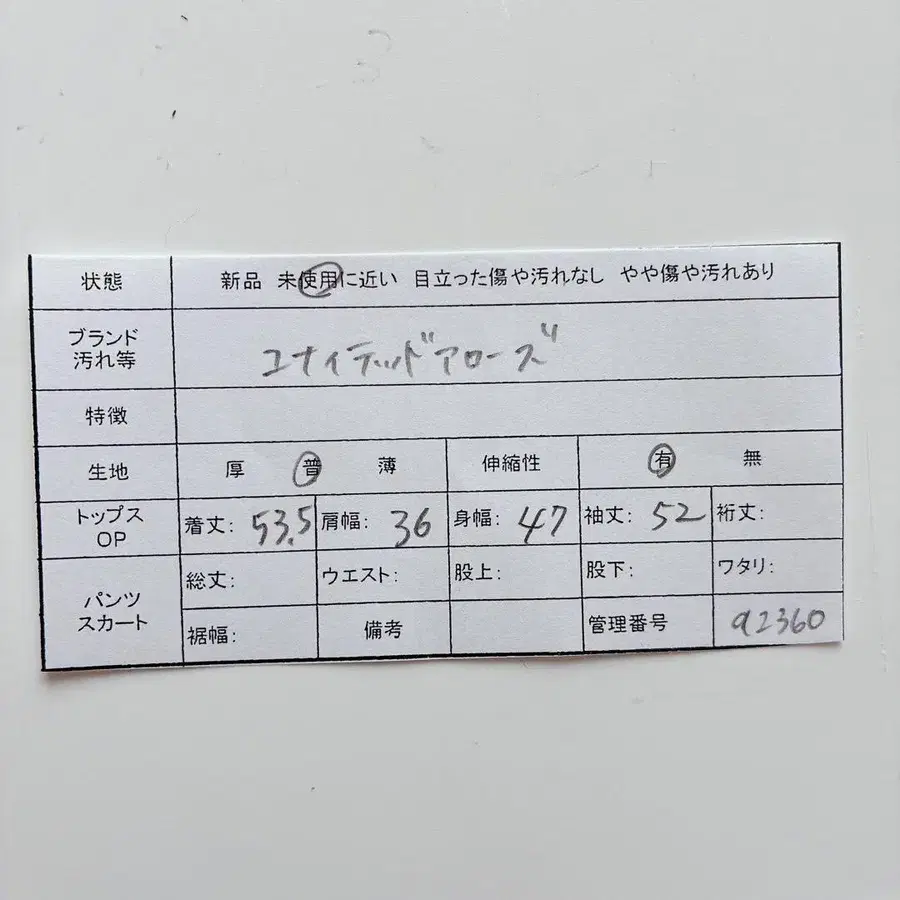 状態 新品 未使用に近い 目立った傷や汚れなし やや傷や汚れあり
ブランド
汚れ等 ユナイテッドアローズ
特徴
生地 厚 普 薄 伸縮性 有 無
トップス
OP 着丈: 53.5 肩幅: 36 身幅: 47 袖丈: 52 裄丈:
パンツ
スカート 総丈: ウエスト: 股上: 股下: ワタリ:
裾幅: 備考 管理番号 a2360